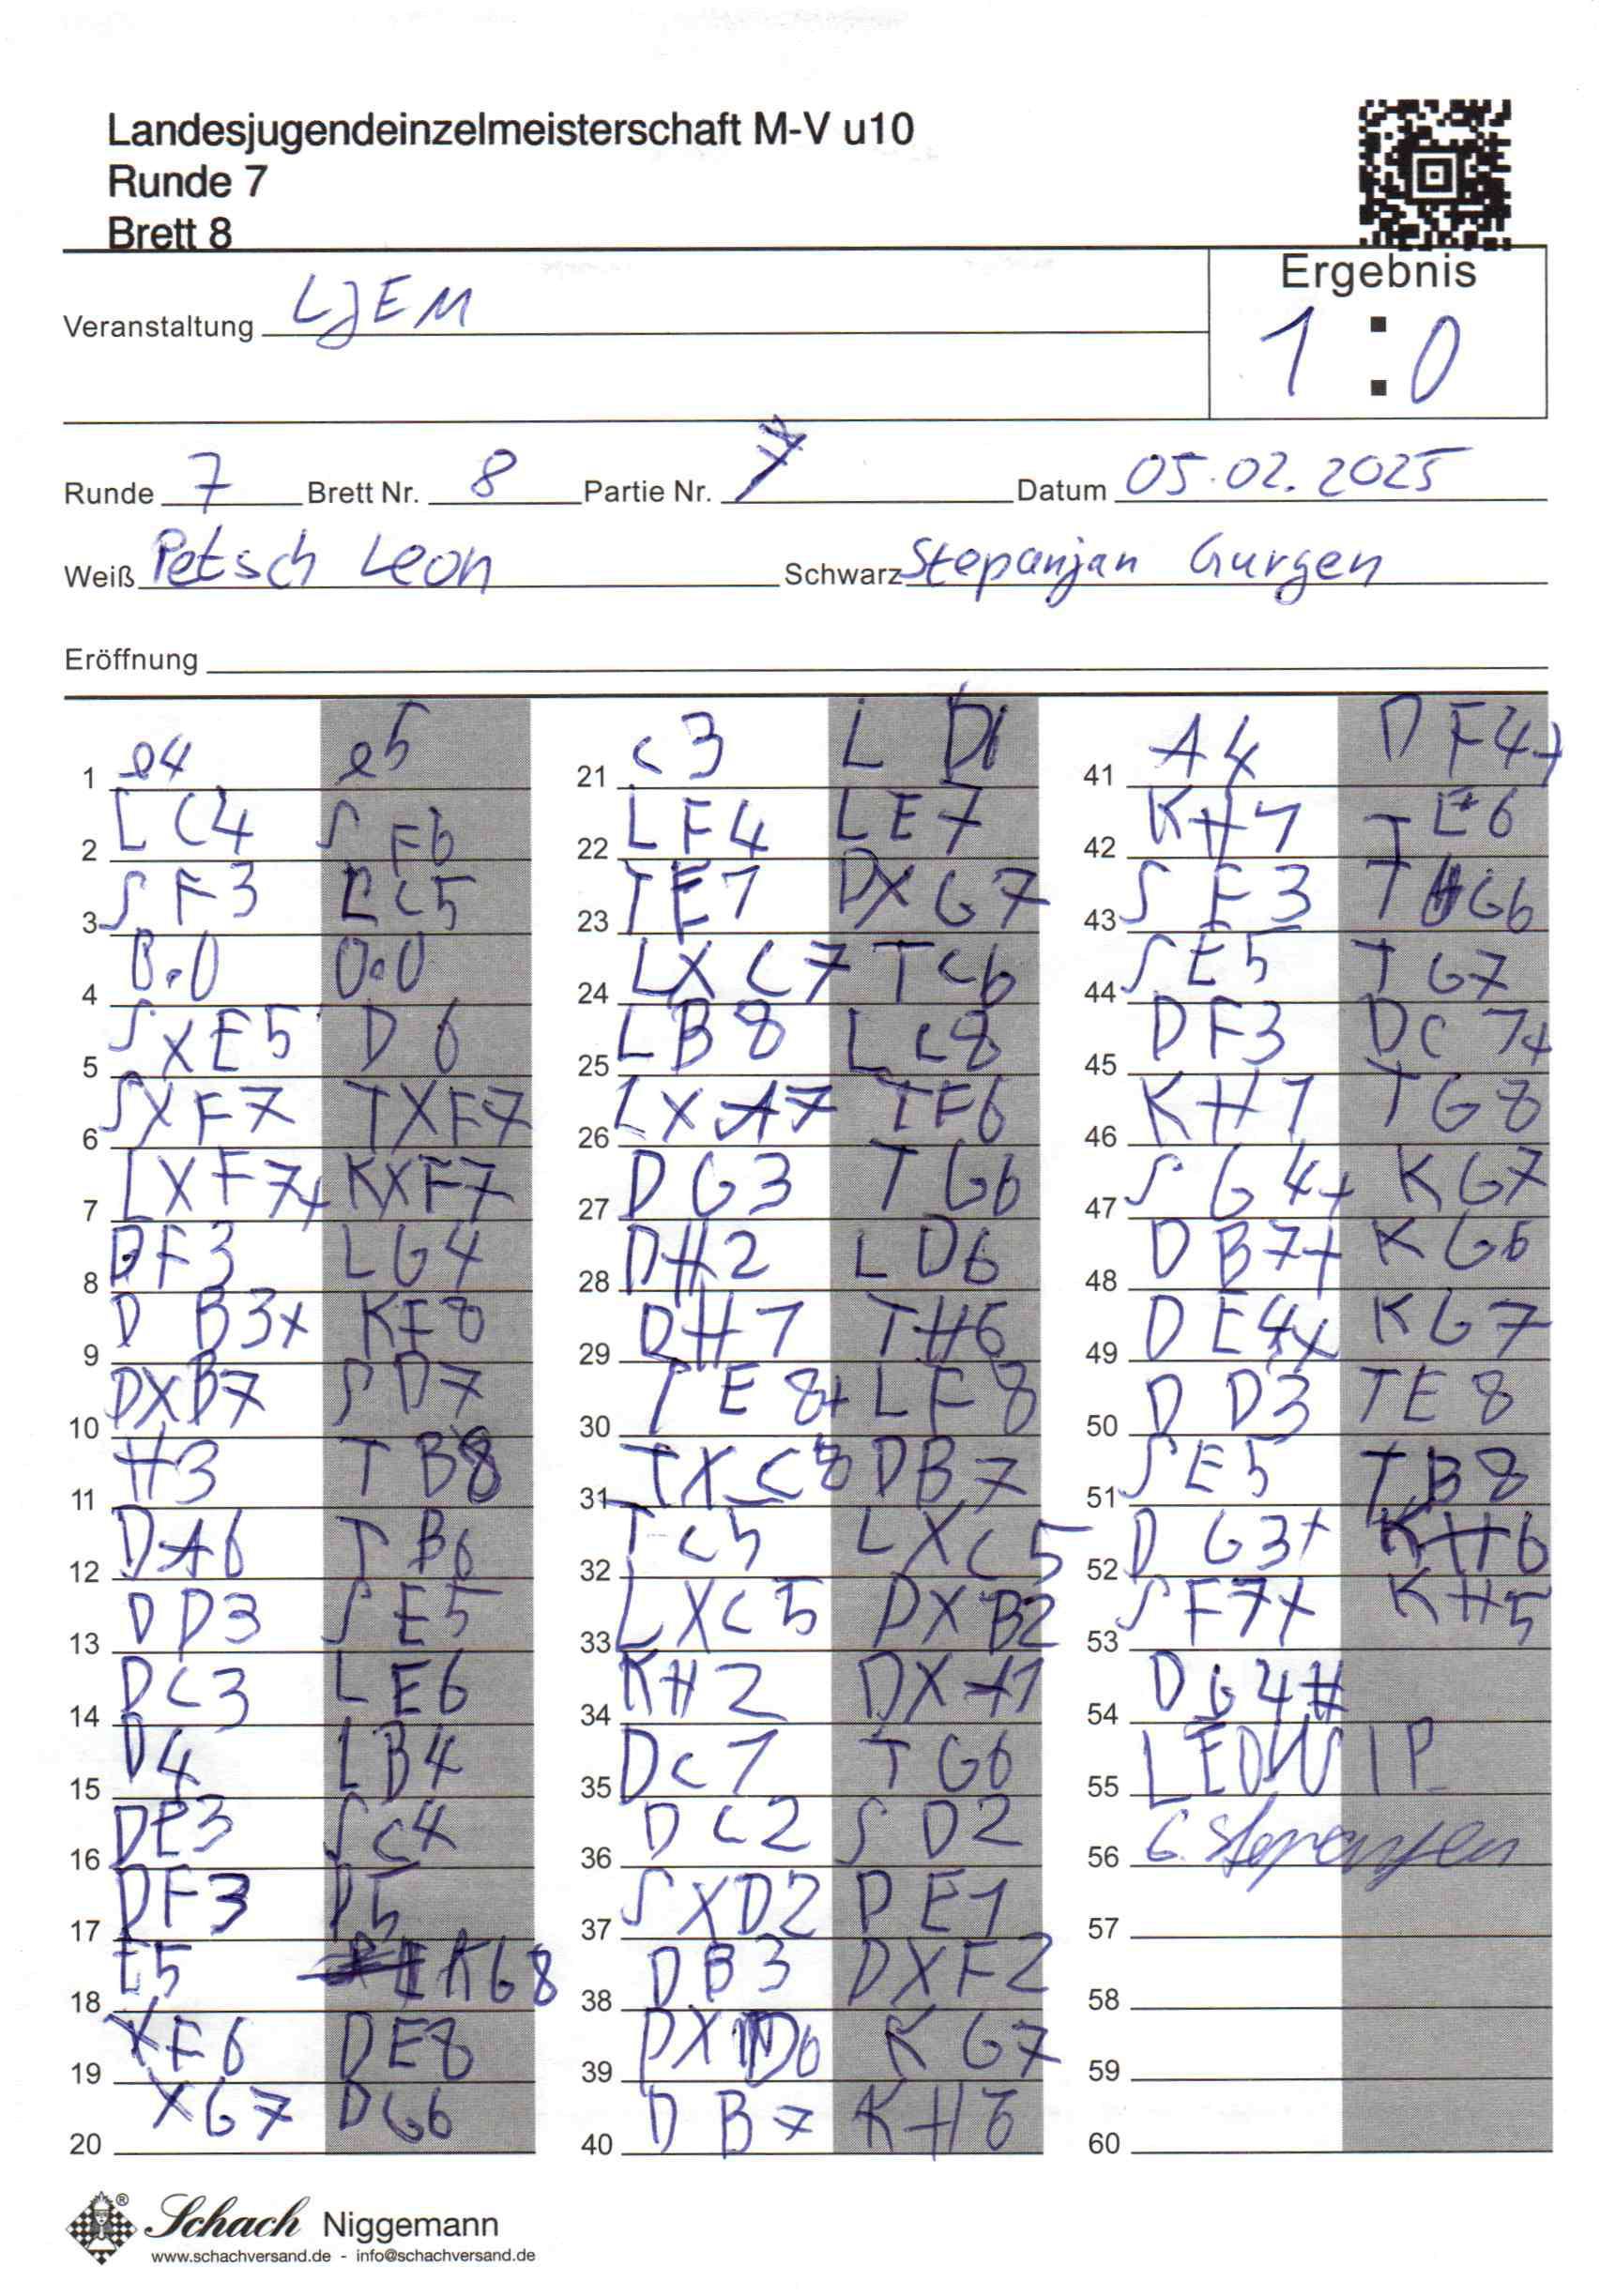 Landesjugendeinzelmeisterschaft M-V u10
Runde 7
Brett 8
Ergebnis
1 : 0
Veranstaltung LJEM
Runde 7 Brett Nr. 8 Partie Nr. 7 Datum 05.02.2025
Weiß Petsch Leon Schwarz Stepanjan Gurgen
Eröffnung
1 e4 e5
2 LC4 SF6
3 SF3 LC5
4 0.0 0.0
5 SXE5 D6
6 SXF7 TXF7
7 LXF7+ KXF7
8 DF3 LG4
9 DB3+ KF8
10 DXB7 SD7
11 H3 TB8
12 DA6 TB6
13 DD3 SE5
14 DC3 LE6
15 D4 LB4
16 DE3 SC4
17 DF3 D5
18 E5 KG8
19 XF6 DE8
20 XG7 DG6
21 C3 LD6
22 LF4 LE7
23 TE1 DXG7
24 LXC7 TC6
25 LB8 LC8
26 LXA7 TF6
27 DG3 TG6
28 DH2 LD6
29 DH1 TH6
30 TE8+ LF8
31 TXC8 DB7
32 TC5 LXC5
33 LXC5 DXB2
34 KH2 DXA1
35 DC1 TG6
36 DC2 SD2
37 SXD2 DE1
38 DB3 DXF2
39 DXD6 KG7
40 DB7 KH6
41 A4 DF4+
42 KH1 TE6
43 SF3 TG6
44 SE5 TG7
45 DF3 DC7+
46 KH1 TG8
47 SG4+ KG7
48 DB7+ KG6
49 DE4+ KG7
50 DD3 TE8
51 SE5 TB8
52 DG3+ KH6
53 SF7+ KH5
54 DG4#
55 LEON P
56 G. Stepanjan
57
58
59
60
Schach Niggemann
www.schachversand.de - info@schachversand.de